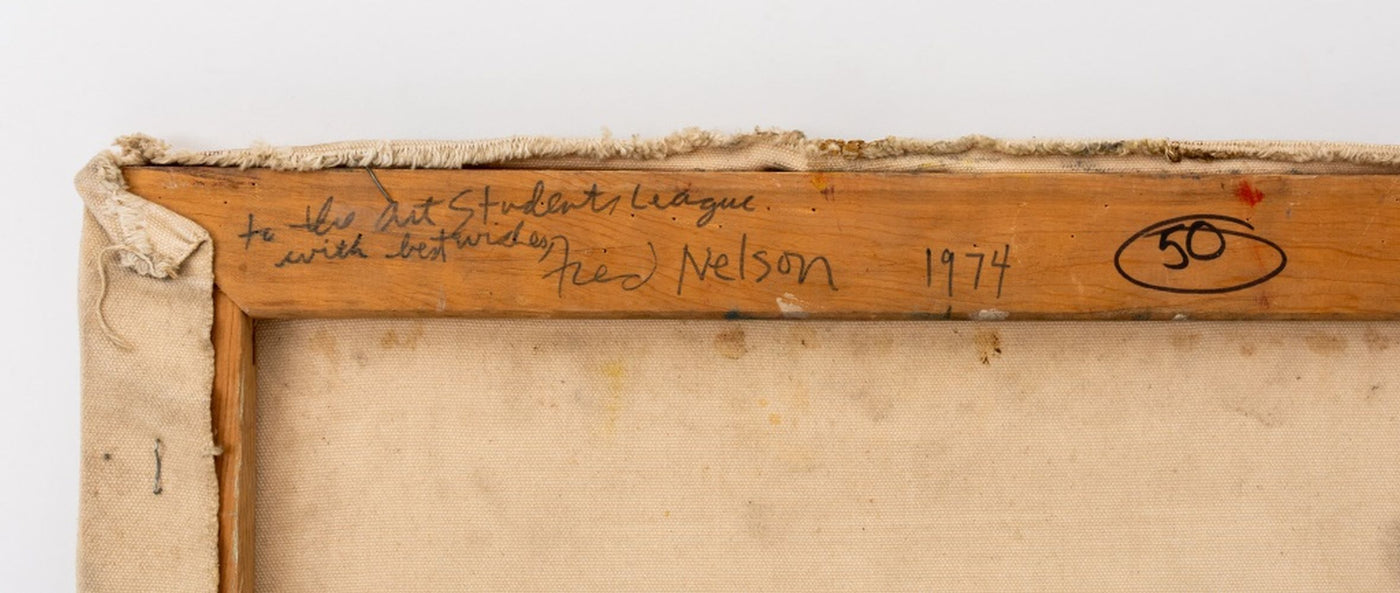 to the Art Students League.
with best wishes,
Fred Nelson 1974
50